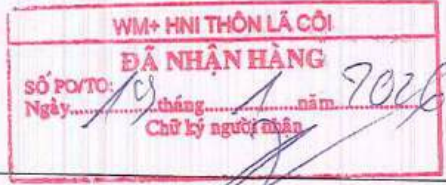 WM+ HNI THÔN LÃ CÔI
ĐÃ NHẬN HÀNG
SỐ PO/TO:
Ngày....19....tháng....1....năm 2026
Chữ ký người nhận